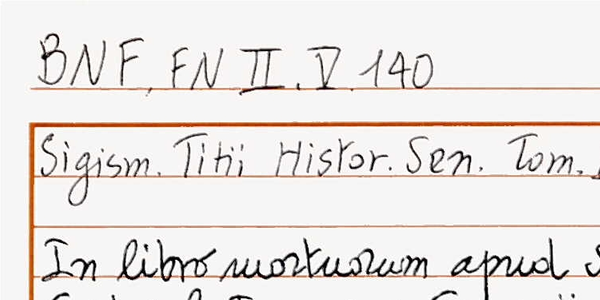 BNF, FN II. V. 140
Sigism. Titii Histor. Sen. Tom.
In libro mortuorum apud